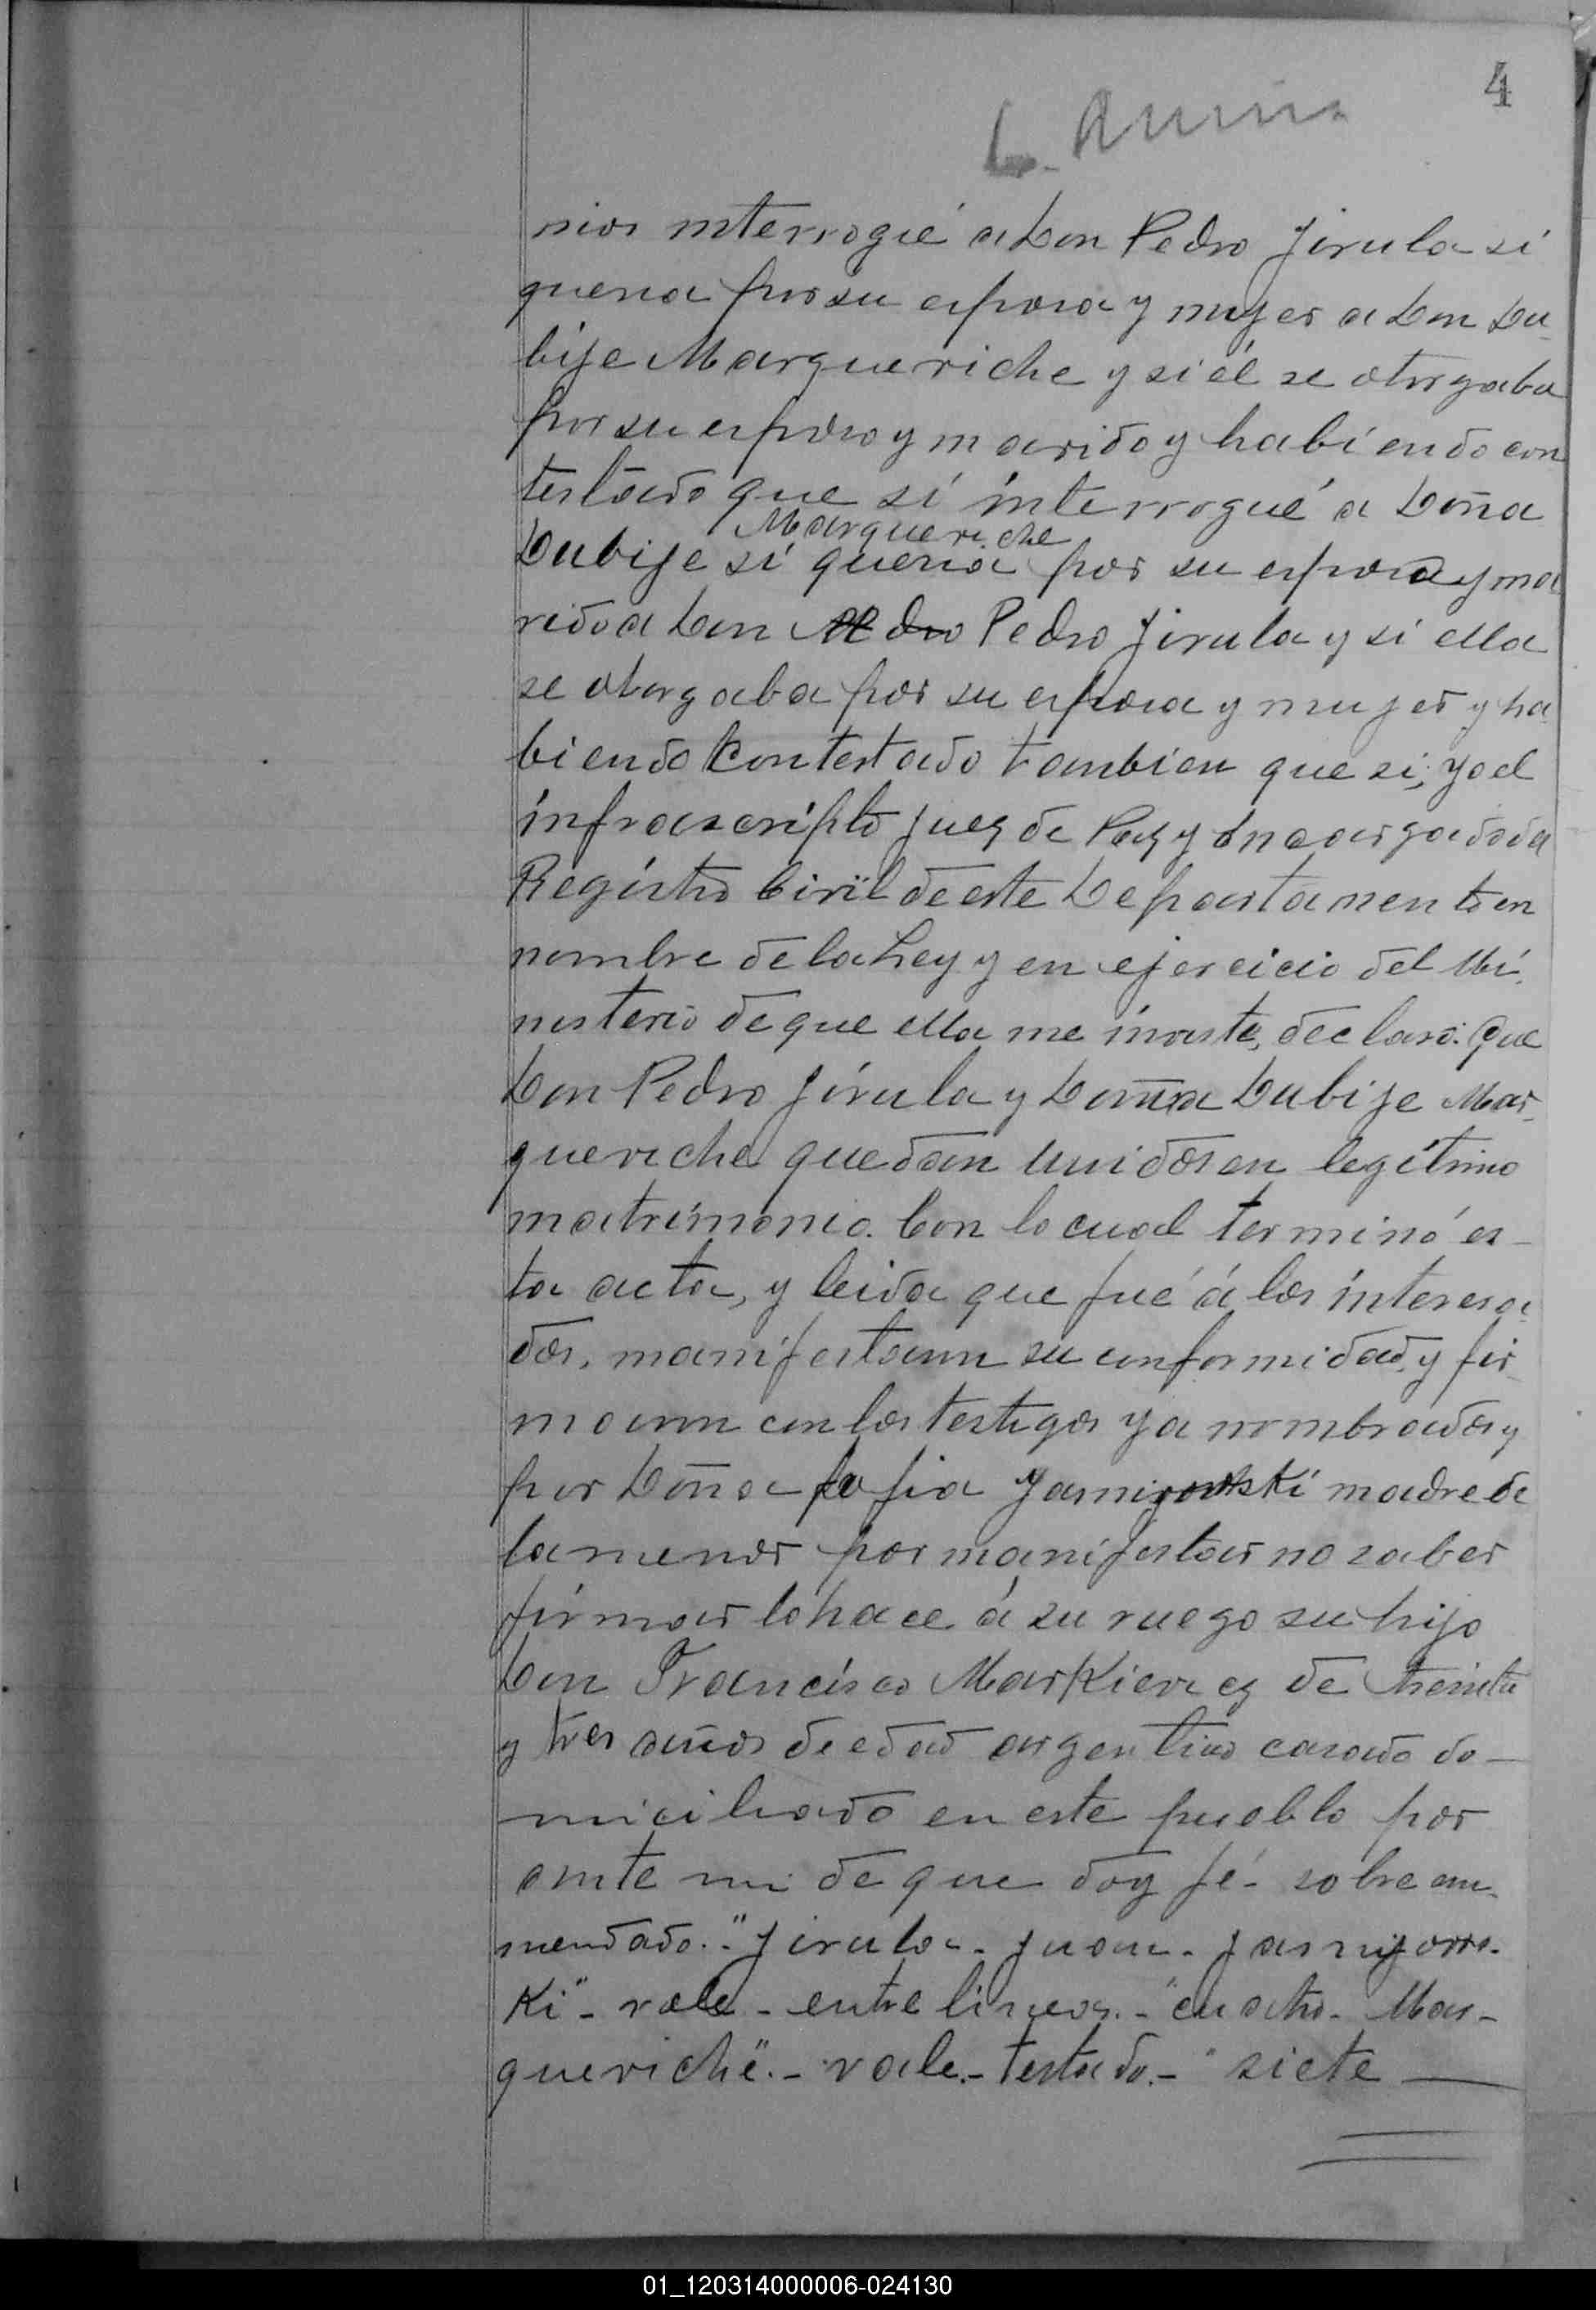 4
nios interrogué a Don Pedro Jirula si
queria por su esposa y mujer a Don Du_
bije Margueriche y si él se otorgaba
por su esposo y marido y habiendo con
testado que sí interrogué a Doña
Margueriche
Dubije sí queria por su esposo y ma
rido a Don Pedro Jirula y si ella
se otorgaba por su esposa y mujer y ha
biendo contestado tambien que si; yo el
infrascripto Juez de Paz y Encargado del
Registro Civil de este Departamento en
nombre de la Ley y en ejercicio del Mi_
nisterio de que ella me inviste, declaro: Que
Don Pedro Jirula y Doña Dubije Mar_
gueriche quedan unidos en legítimo
matrimonio. Con lo cual terminó es_
ta acta, y leida que fué á los interesa_
dos, manifestaron su conformidad, y fir_
maron con los testigos ya nombrados y
por Doña Sofia Jamijorrski madre de
la menor por manifestar no saber
firmar lo hace á su ruego su hijo
Don Francisco Markievicz de treinta
y tres años de edad argentino casado do_
miciliado en este pueblo por
ante mi de que doy fé - sobre en_
mendado.- "Jirula - Juan - Jamijorrs_
ki" - vale - entre lineas.- "cuatro - Mar_
gueriche".- vale.- testado.- "siete
01_120314000006-024130